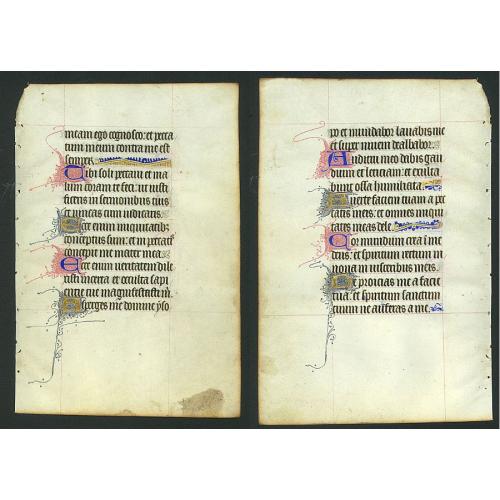 meam ego cognosco: et pecca
tum meum contra me est
semper.
Tibi soli peccavi et ma
lum coram te feci: ut iusti
ficeris in sermonibus tuis
et vincas cum iudicaris.
Ecce enim iniquitatib;
conceptus sum: et in peccatis
concepit me mater mea.
Ecce enim veritatem dile
xisti incerta et occulta sapi
entie tue manifestasti m.
Asperges me domine yso
po et mundabor lavabis me
et super nivem dealbabor.
Auditui meo dabis gau
dium et leticiam: et exulta
bunt ossa humiliata.
Averte faciem tuam a pec
catis meis: et omnes iniqui
tates meas dele.
Cor mundum crea i me
deus: et spiritum rectum in
nova in visceribus meis.
Ne proicias me a facie
tua: et spiritum sanctum
tuum ne auferas a me.